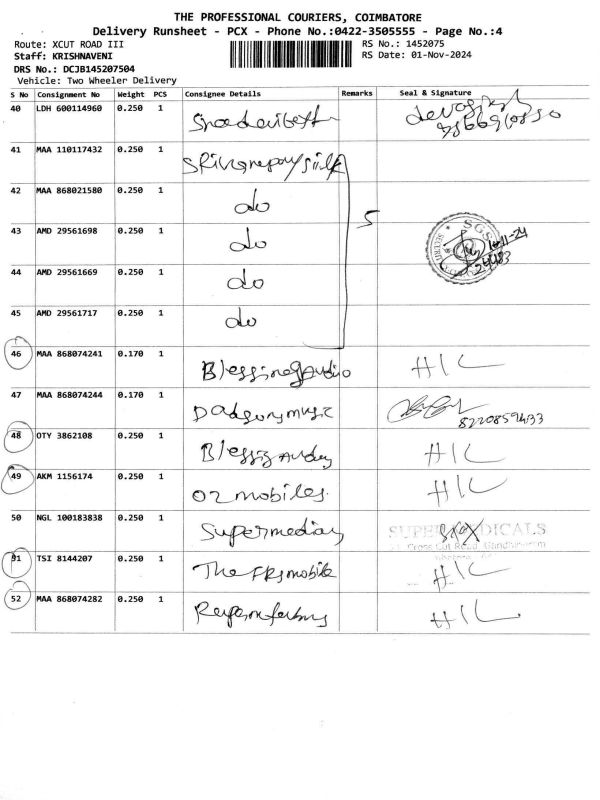 THE PROFESSIONAL COURIERS, COIMBATORE
Delivery Runsheet - PCX - Phone No.:0422-3505555 - Page No.:4
Route: XCUT ROAD III RS No.: 1452075
Staff: KRISHNAVENI RS Date: 01-Nov-2024
DRS No.: DCJB145207504
Vehicle: Two Wheeler Delivery
S No Consignment No Weight PCS Consignee Details Remarks Seal & Signature
40 LDH 600114960 0.250 1
41 MAA 110117432 0.250 1
42 MAA 868021580 0.250 1 do
5
43 AMD 29561698 0.250 1 do SGS
24483
44 AMD 29561669 0.250 1 do
45 AMD 29561717 0.250 1 do
46 MAA 868074241 0.170 1 Blessing Audio HIC
47 MAA 868074244 0.170 1 music
48 OTY 3862108 0.250 1 HIC
49 AKM 1156174 0.250 1 O2 mobiles. HIC
50 NGL 100183838 0.250 1 Supermedicay SUPER MEDICALS
Cross Cut Road, Gandhipuram
51 TSI 8144207 0.250 1 The mobile HIC
52 MAA 868074282 0.250 1 HIC